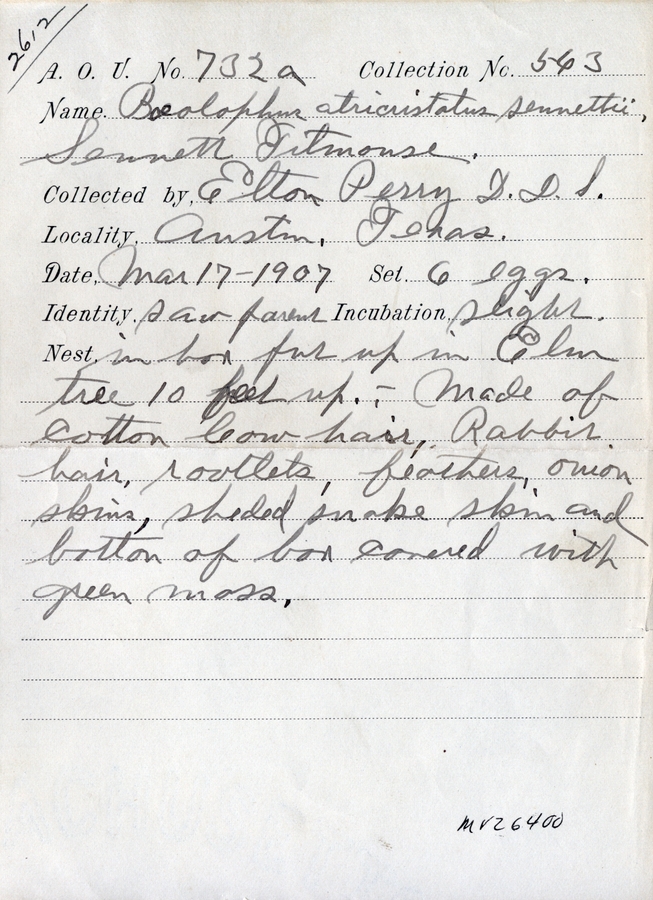 26,2
A. O. U. No. 732a Collection No. 563
Name. Baeolophus atricristatus sennettii,
Sennett Titmouse.
Collected by, Elton Perry D.D.S.
Locality, Austin, Texas.
Date, Mar 17-1907 Set. 6 eggs.
Identity, saw parent Incubation, slight.
Nest, in box put up in Elm
tree 10 feet up. - Made of
cotton Cow hair, Rabbit
hair, rootlets, feathers, onion
skins, sheded snake skin and
bottom of box covered with
green moss.
MVZ6400